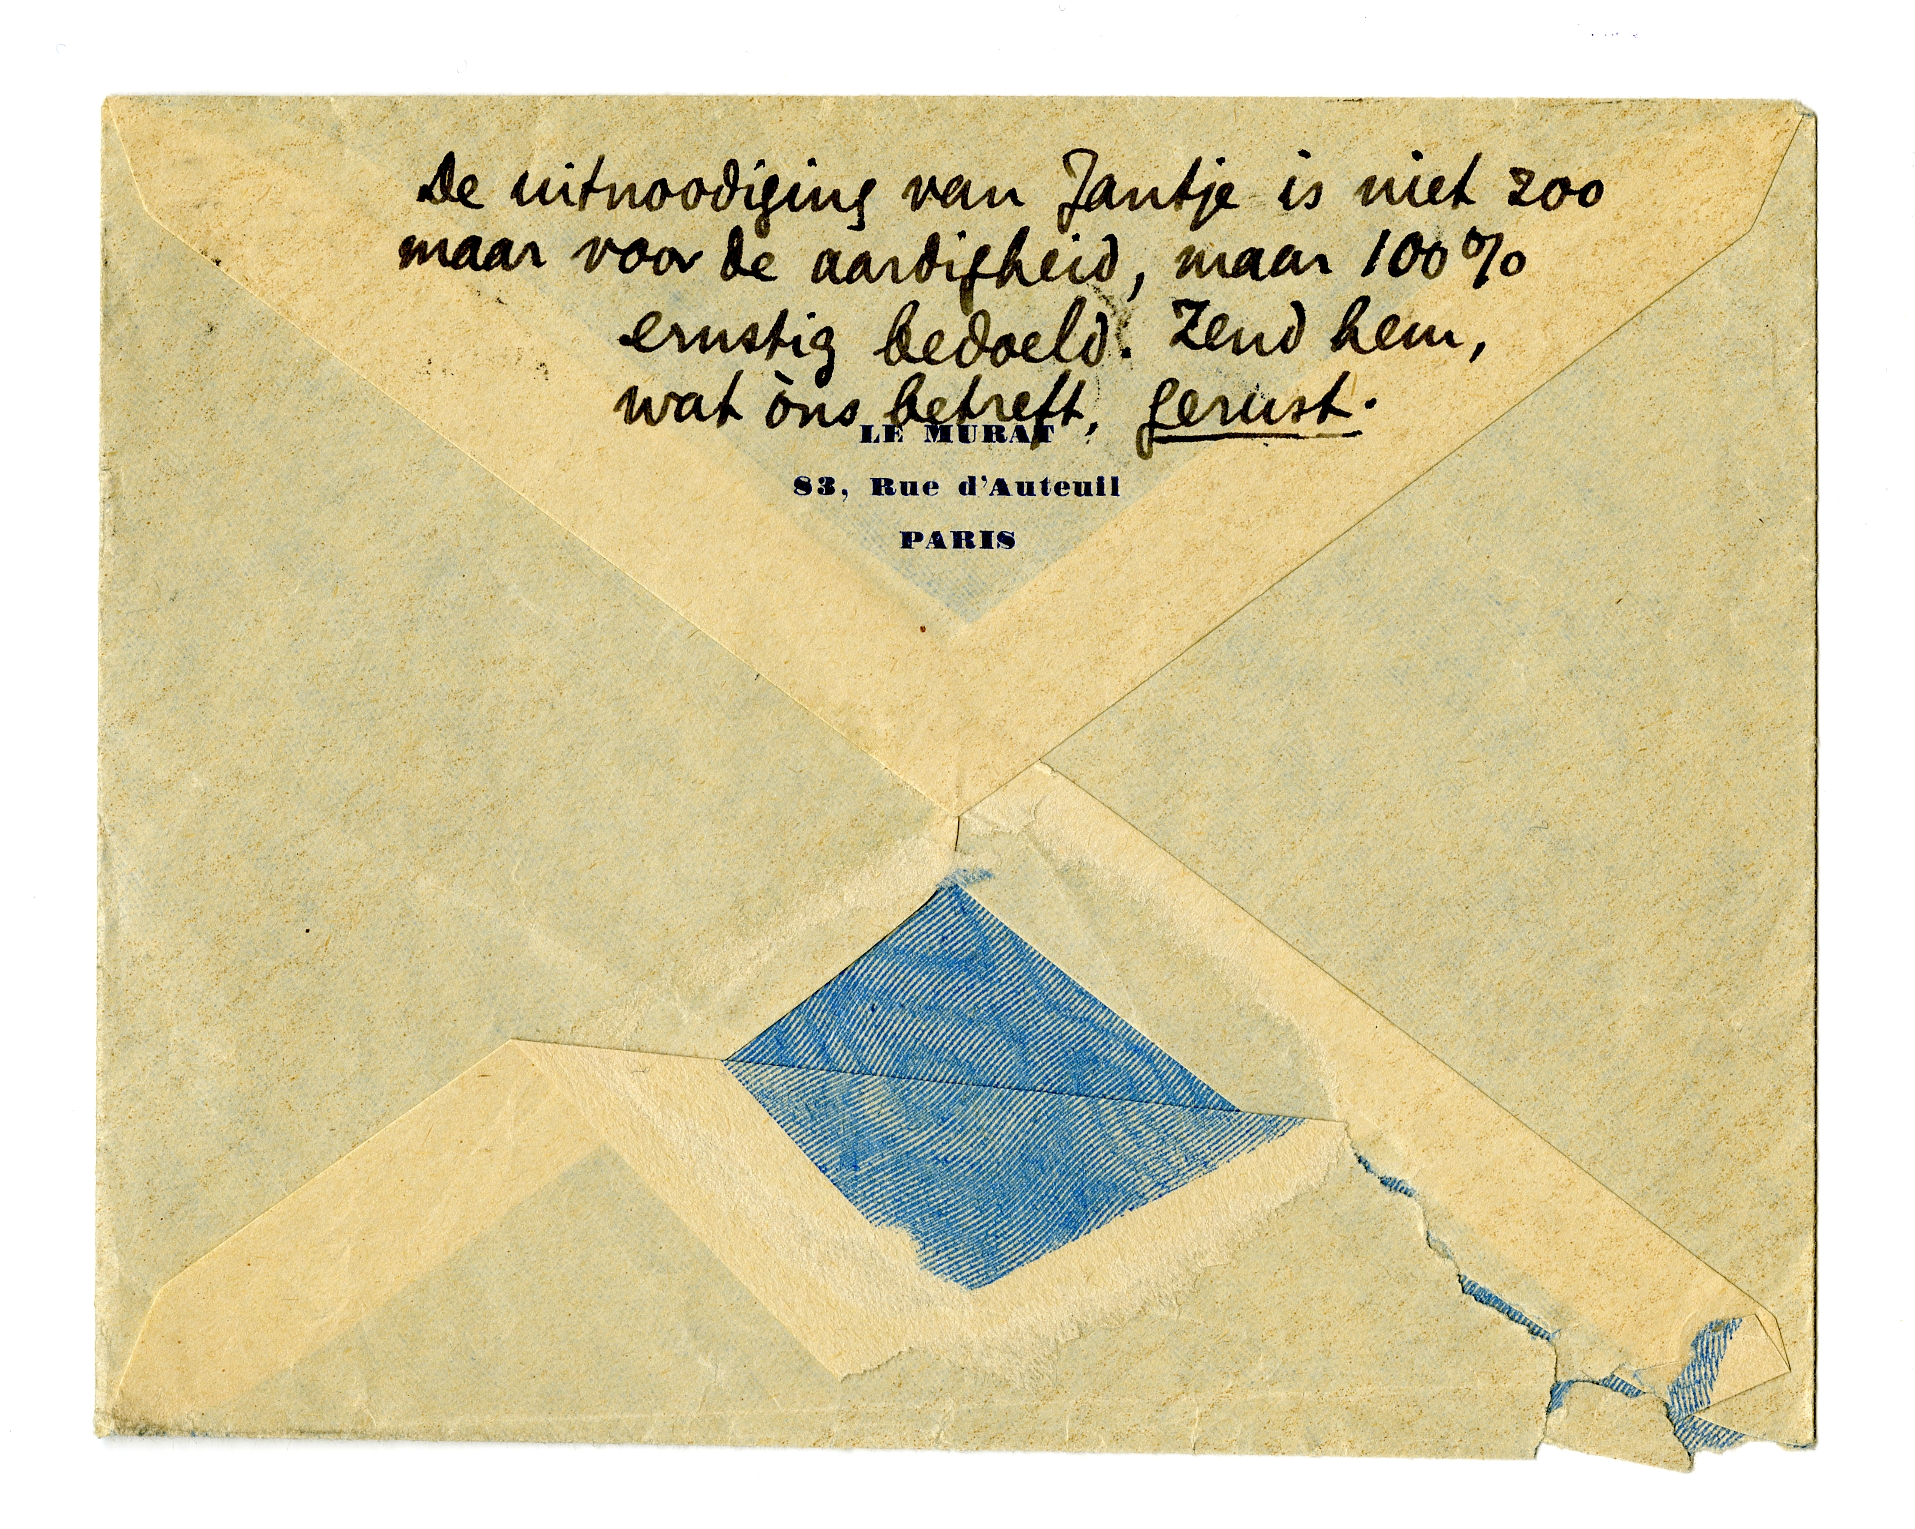 De uitnoodiging van Jantje is niet zoo
maar voor de aardigheid, maar 100%
ernstig bedoeld. Zend hem,
wat òns betreft, gerust.
LE MURAT
83, Rue d'Auteuil
PARIS